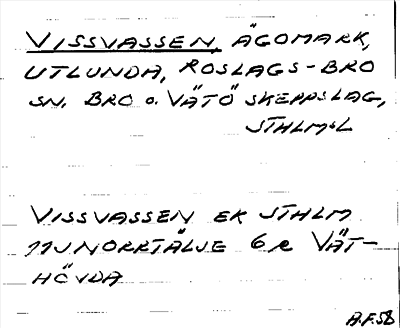 VISSVASSEN, ÄGOMARK,
UTLUNDA, ROSLAGS-BRO
SN. BRO o. VÄTÖ SKEPPSLAG,
STHLMSL
VISSVASSEN EK STHLM
NORRTÄLJE 6 VÄT-
HÖVDA
A.F.58